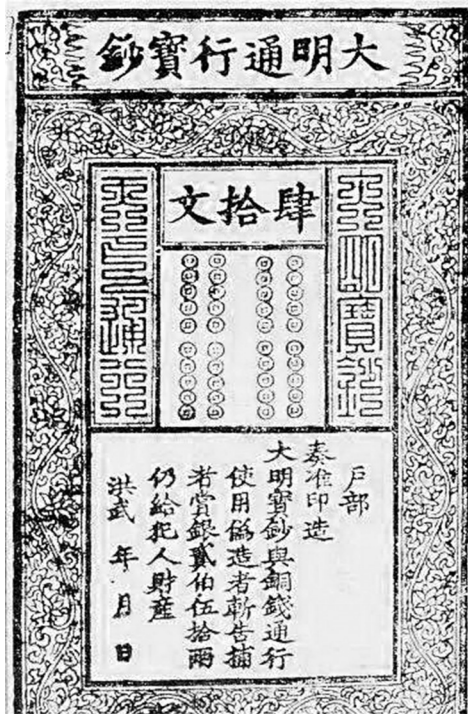 大明通行寶鈔
肆拾文
大明寶鈔
天下通行
户部
奏准印造
大明寶鈔與銅錢通行
使用僞造者斬告捕
者賞銀貳伯伍拾兩
仍給犯人財産
洪武 年 月 日